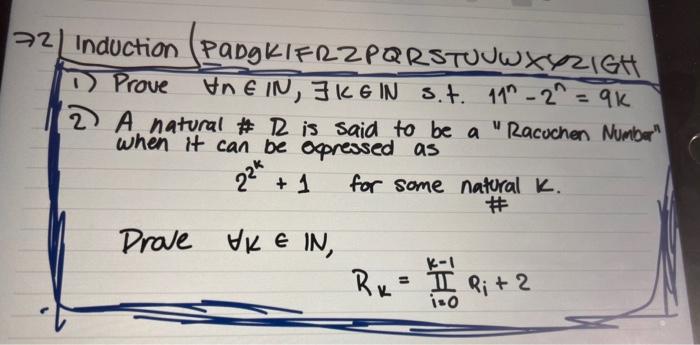 →2| Induction (PADgKIFRZPQRSTUVWXYZIGH
1) Prove ∀n ∈ IN, ∃K ∈ IN s.t. 11ⁿ - 2ⁿ = 9K
2) A natural # R is said to be a "Racuchen Number"
when it can be expressed as
2^2^K + 1 for some natural K.
#
Prove ∀K ∈ IN,
R_K = ∏_{i=0}^{K-1} R_i + 2